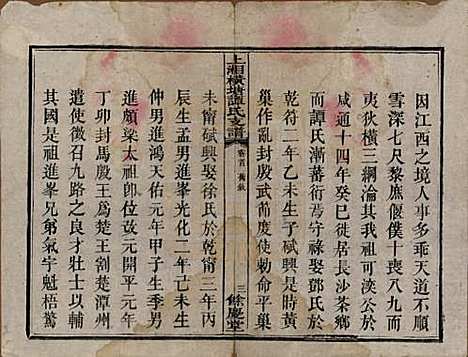 因江西之境人事多乖天道不順
雪深七尺黎庶偃僕十喪八九而
夷狄橫三綱淪其我祖可公於
咸通十四年癸巳徙居長沙茶鄉
而譚氏漸蕃衍焉守祿娶鄧氏於
乾符二年乙未生子賦興是時黃
巢作亂封殷武節度使勅命平巢
上湘橫塘譚氏支譜
卷首
舊敘
三
餘慶堂
未甯賦興娶徐氏於乾甯三年丙
辰生孟男進峯光化二年己未生
仲男進鴻天佑元年甲子生季男
進頗梁太祖卽位改元開平元年
丁卯封馬殷王爲楚王割楚潭州
遣使徵召九路之良才壯士以輔
其國是祖進峯兄弟氣宇魁梧驚